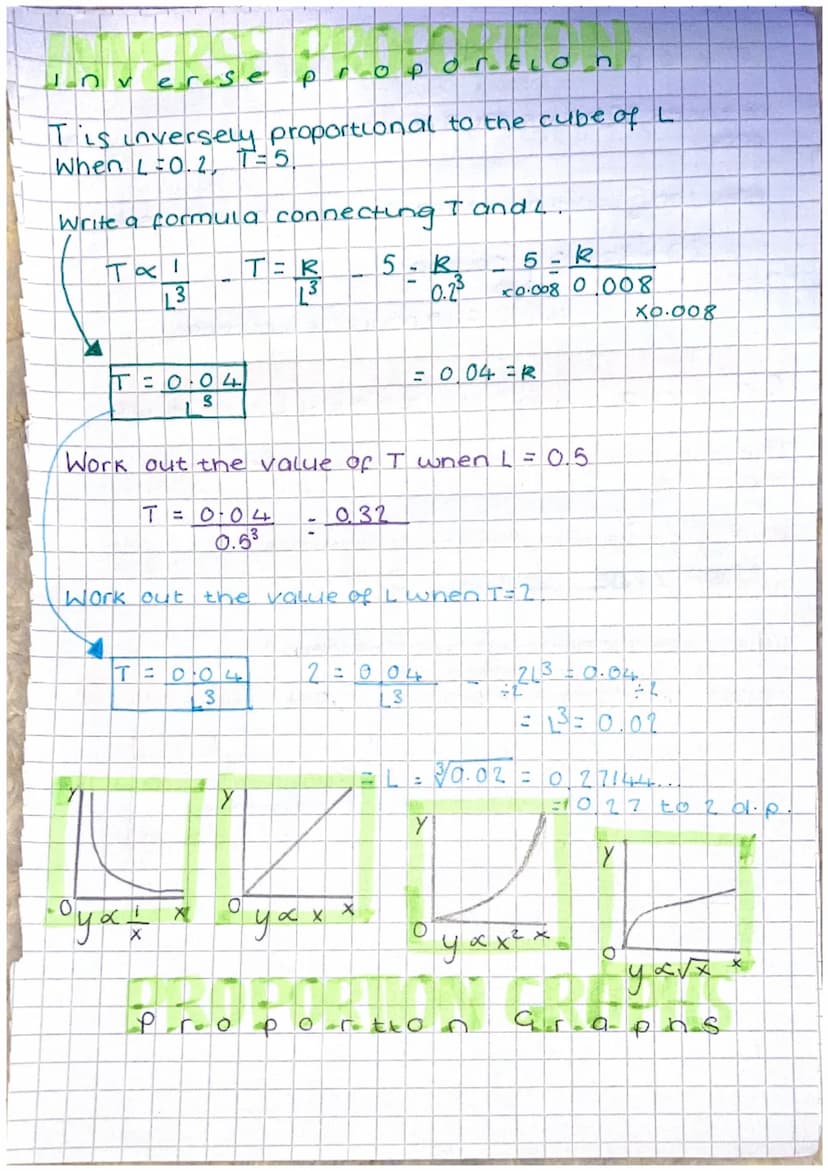 INVERSE PROPORTION
Inverse proportion
T is inversely proportional to the cube of L
When L=0.2, T=5.
Write a formula connecting T and L.
T ∝ 1/L³ - T = k/L³ - 5 = k/0.2³ - 5 = k/0.008
×0.008 ×0.008
T = 0.04/L³ = 0.04 = k
Work out the value of T when L = 0.5
T = 0.04/0.5³ = 0.32
Work out the value of L when T=2.
T = 0.04/L³ 2 = 0.04/L³ - 2L³ = 0.04
÷2 ÷2
= L³ = 0.02
= L = ∛0.02 = 0.27144...
= 0.27 to 2 d.p.
y y y y
0 x 0 x 0 x 0 x
y ∝ 1/x y ∝ x y ∝ x² y ∝ √x
PROPORTION GRAPHS
Proportion Graphs